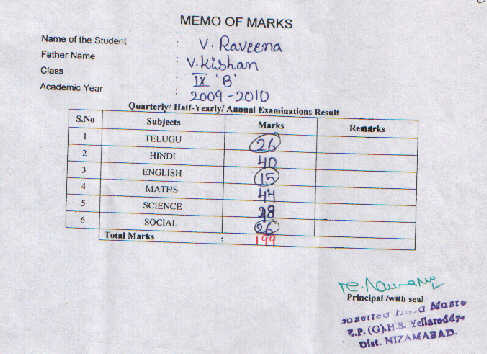 MEMO OF MARKS
Name of the Student : V. Raveena
Father Name : V. Kishan
Class : IX 'B'
Academic Year : 2009-2010
Quarterly/ Half-Yearly/ Annual Examinations Result
S.No Subjects Marks Remarks
1 TELUGU 26
2 HINDI 40
3 ENGLISH 15
4 MATHS 44
5 SCIENCE
6 SOCIAL 26
Total Marks : 199
Principal /with seal
Z.P.(G).H.S. Yellareddy
Dist. NIZAMABAD.